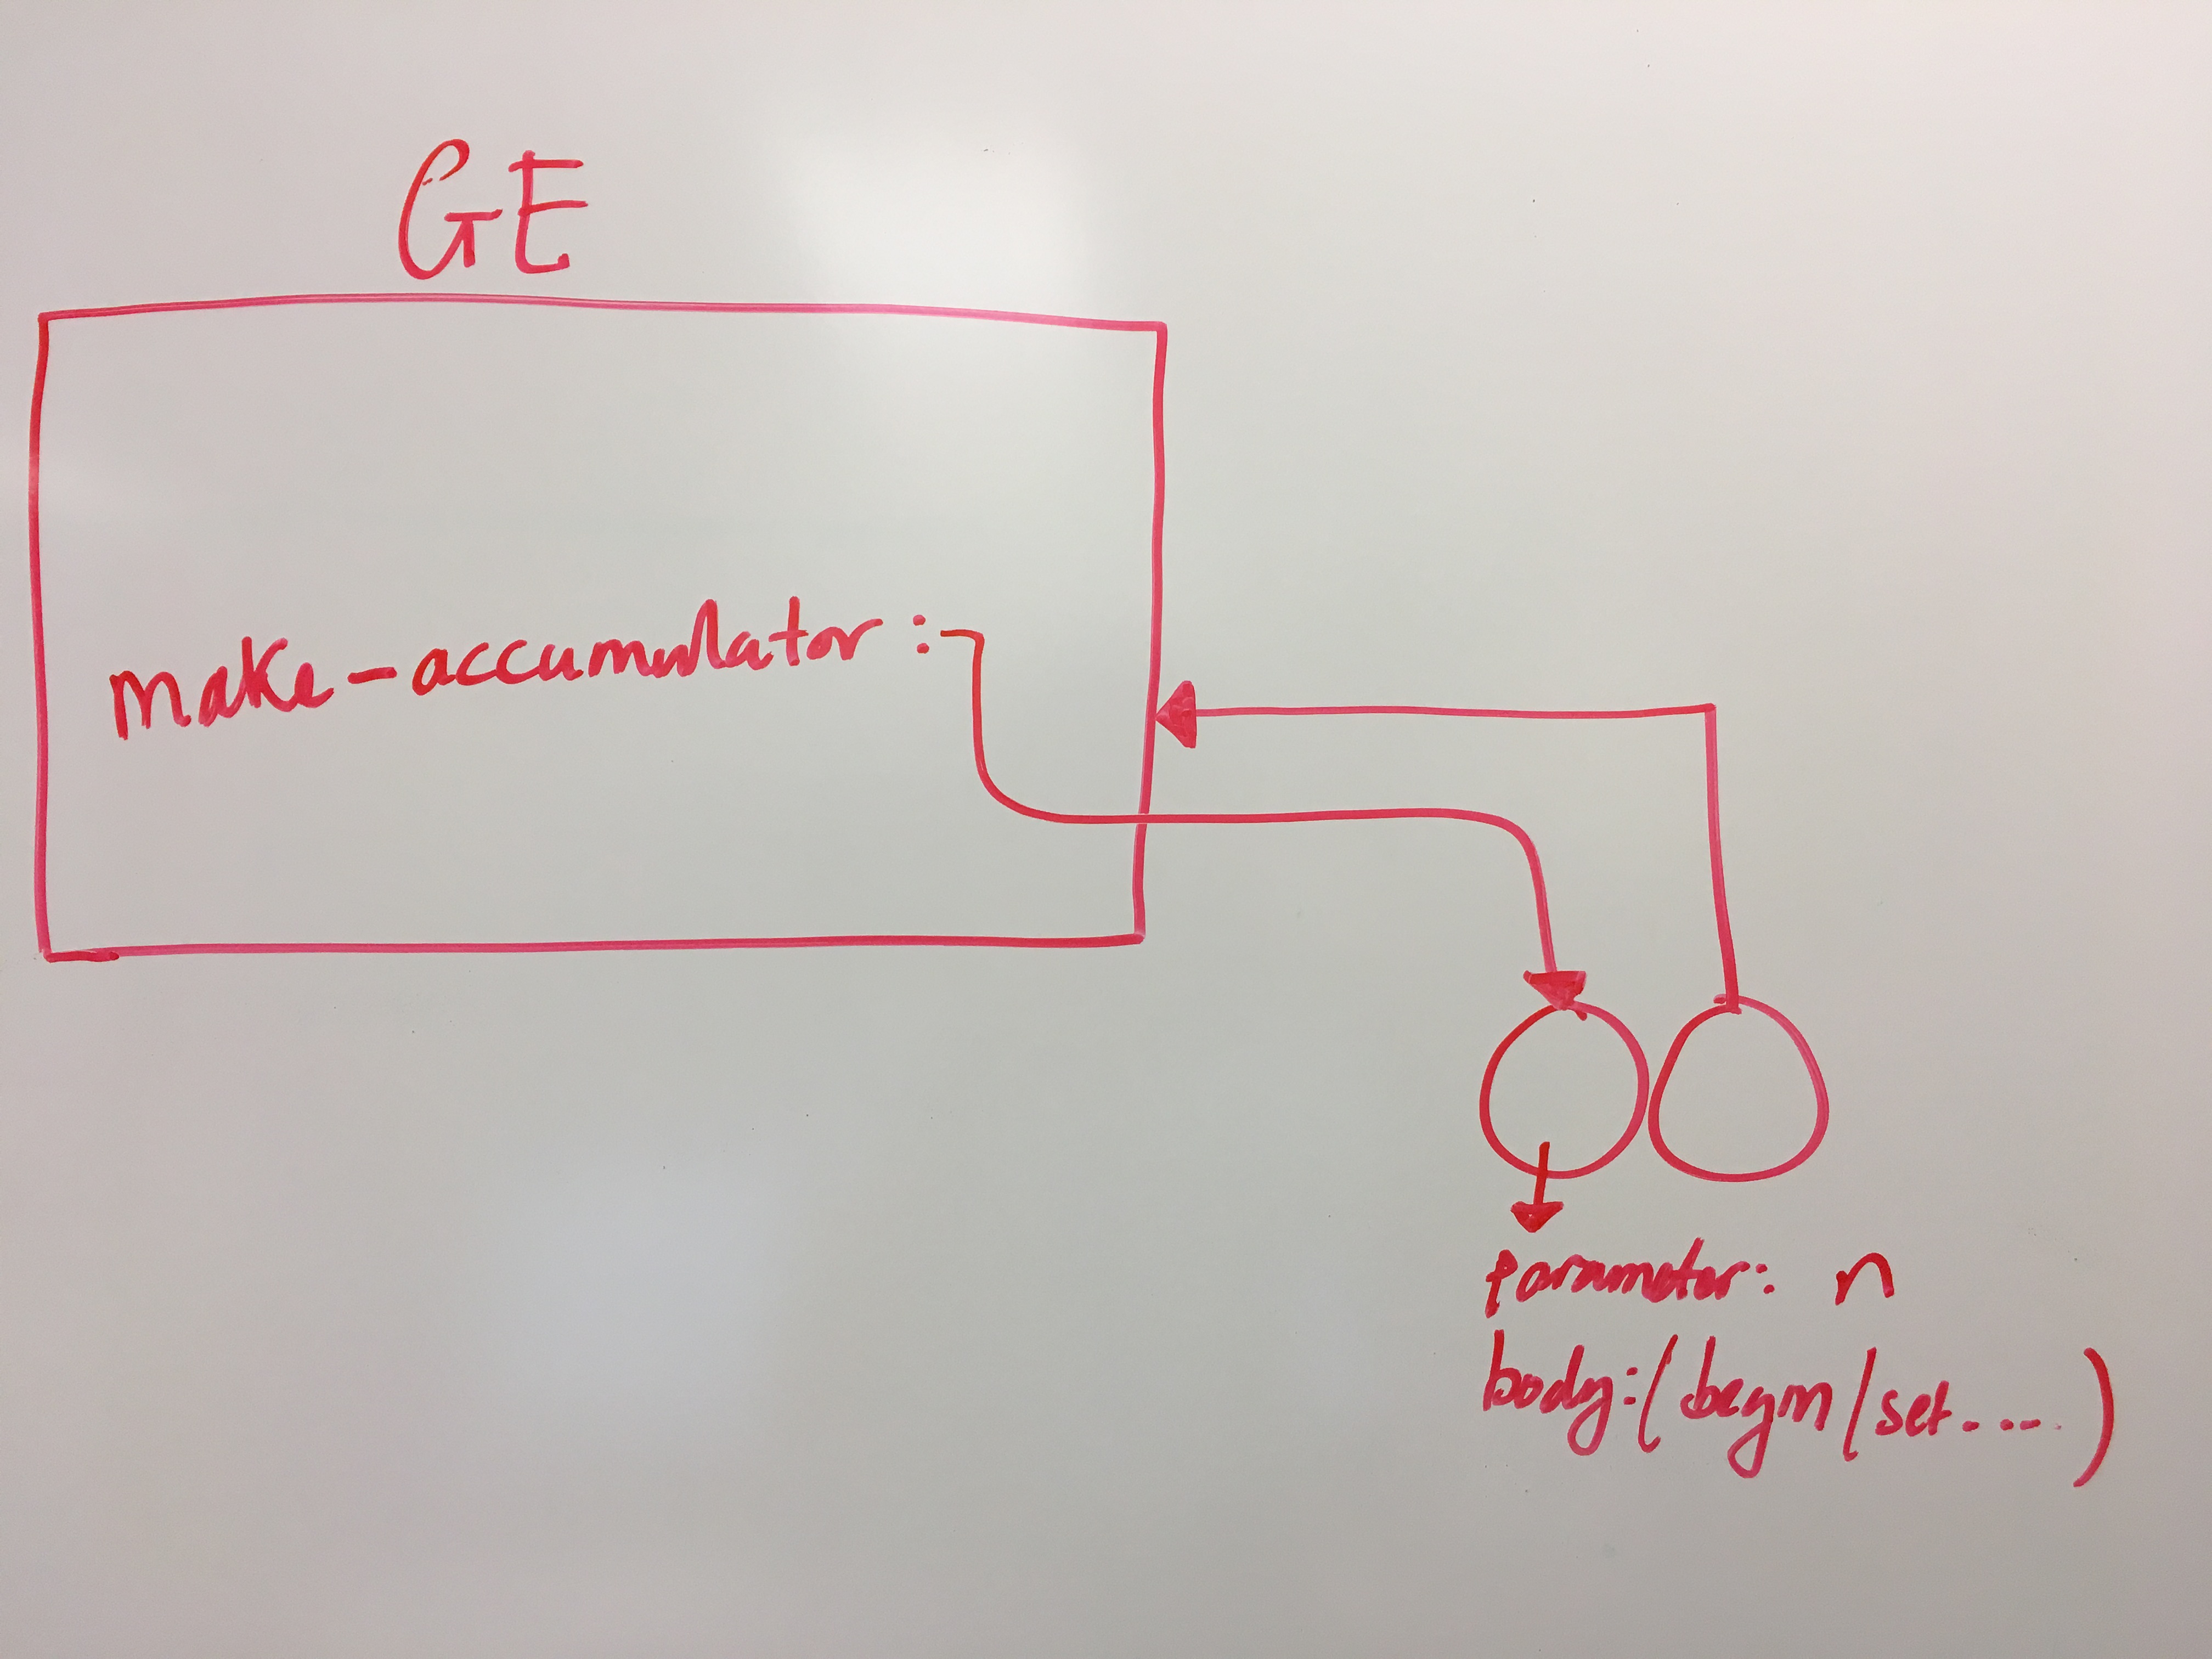 GE
make-accumulator:
parameter: n
body:(begin(set....)